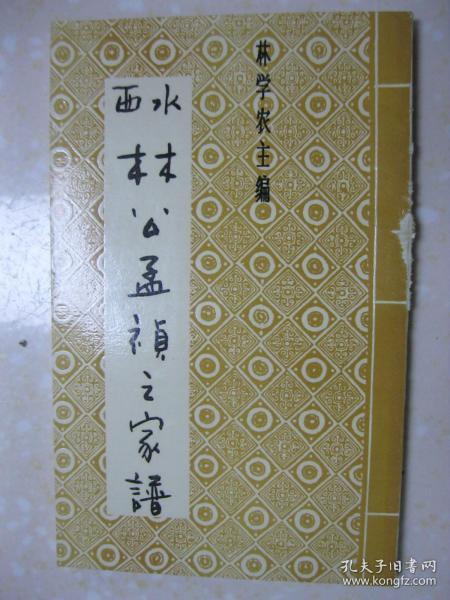 林学农主编
水西
林林公孟禎之家譜
孔夫子旧书网
www.kongfz.com